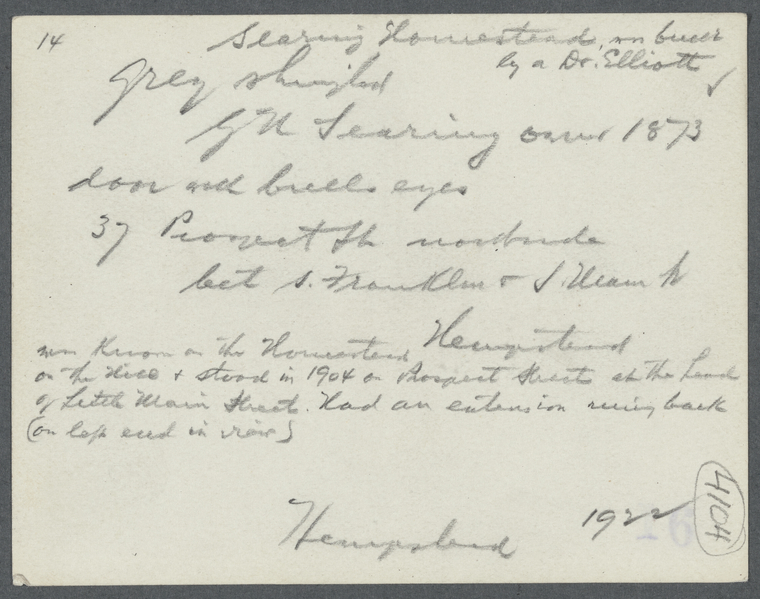 14 Searing Homestead, was built
by a Dr. Elliott
Grey shingled
G N Searing owner 1873
door with bulls eyes
37 Prospect St northside
bet S. Franklin + S. Main St
Hempstead
was known as the Homestead
on the Hill + stood in 1904 on Prospect Street at the head
of Little Main Street. Had an extension back
(on left end in view)
Hempstead 1922
4104